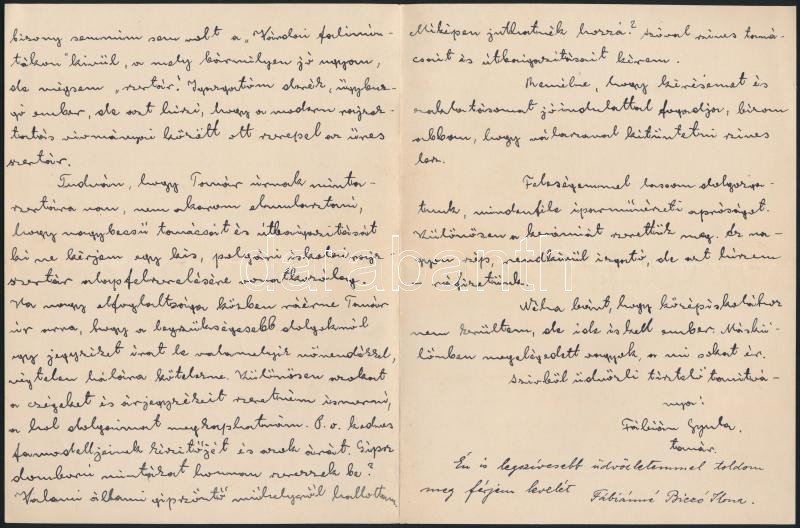 bizony semmim sem volt a „Várdai falimin-
tákon" kívül, a mely bármilyen jó ugyan,
de mégsem „szertár". Igazgatóm derék, ügybuz-
gó ember, de azt hiszi, hogy a modern rajzok-
tatás vívmányai között ott szerepel az üres
szertár.
Tudván, hogy Tanár úrnak minta-
szertára van, nem akarom elmulasztani,
hogy nagybecsű tanácsait és útbaigazításait
ki ne kérjem egy kis, polgári iskolai rajz-
szertár alapfelszerelésére vonatkozólag.
Ha nagy elfoglaltsága közben ráérne Tanár
úr arra, hogy a legszükségesebb dolgokról
egy jegyzéket írat le valamelyik növendékkel,
végtelen hálára kötelezne. Különösen azokat
a cégeket és árjegyzékeit szeretném ismerni,
a hol dolgaimat megkaphatnám. P.o. kedves
famodelljeinek készítőjét és azok árát. Gipsz
domború mintákat honnan szerezzek be?
Valami állami gipszöntő műhelyről hallottam,
Miképen juthatnék hozzá? Szóval szíves taná-
csait és útbaigazításait kérem.
Remélve, hogy kérésemet és
zaklatásomat jóindulattal fogadja, bízom
abban, hogy válaszával kitüntetni szíves
lesz.
Feleségemmel lassan dolgozga-
tunk, mindenféle iparművészeti apróságot.
Különösen a kerámiát szerettük meg. Ez na-
gyon szép, rendkívül izgató, de azt hiszem
ráfizetünk.
Néha bánt, hogy középiskolához
nem kerültem, de ide is kell ember. Máskü-
lönben megelégedett vagyok, a mi sokat ér.
Szívből üdvözli tisztelő tanítvá-
nya:
Fábián Gyula
tanár.
Én is legszívesebb üdvözletemmel toldom
meg férjem levelét Fábiánné Biczó Ilona.
darabanth